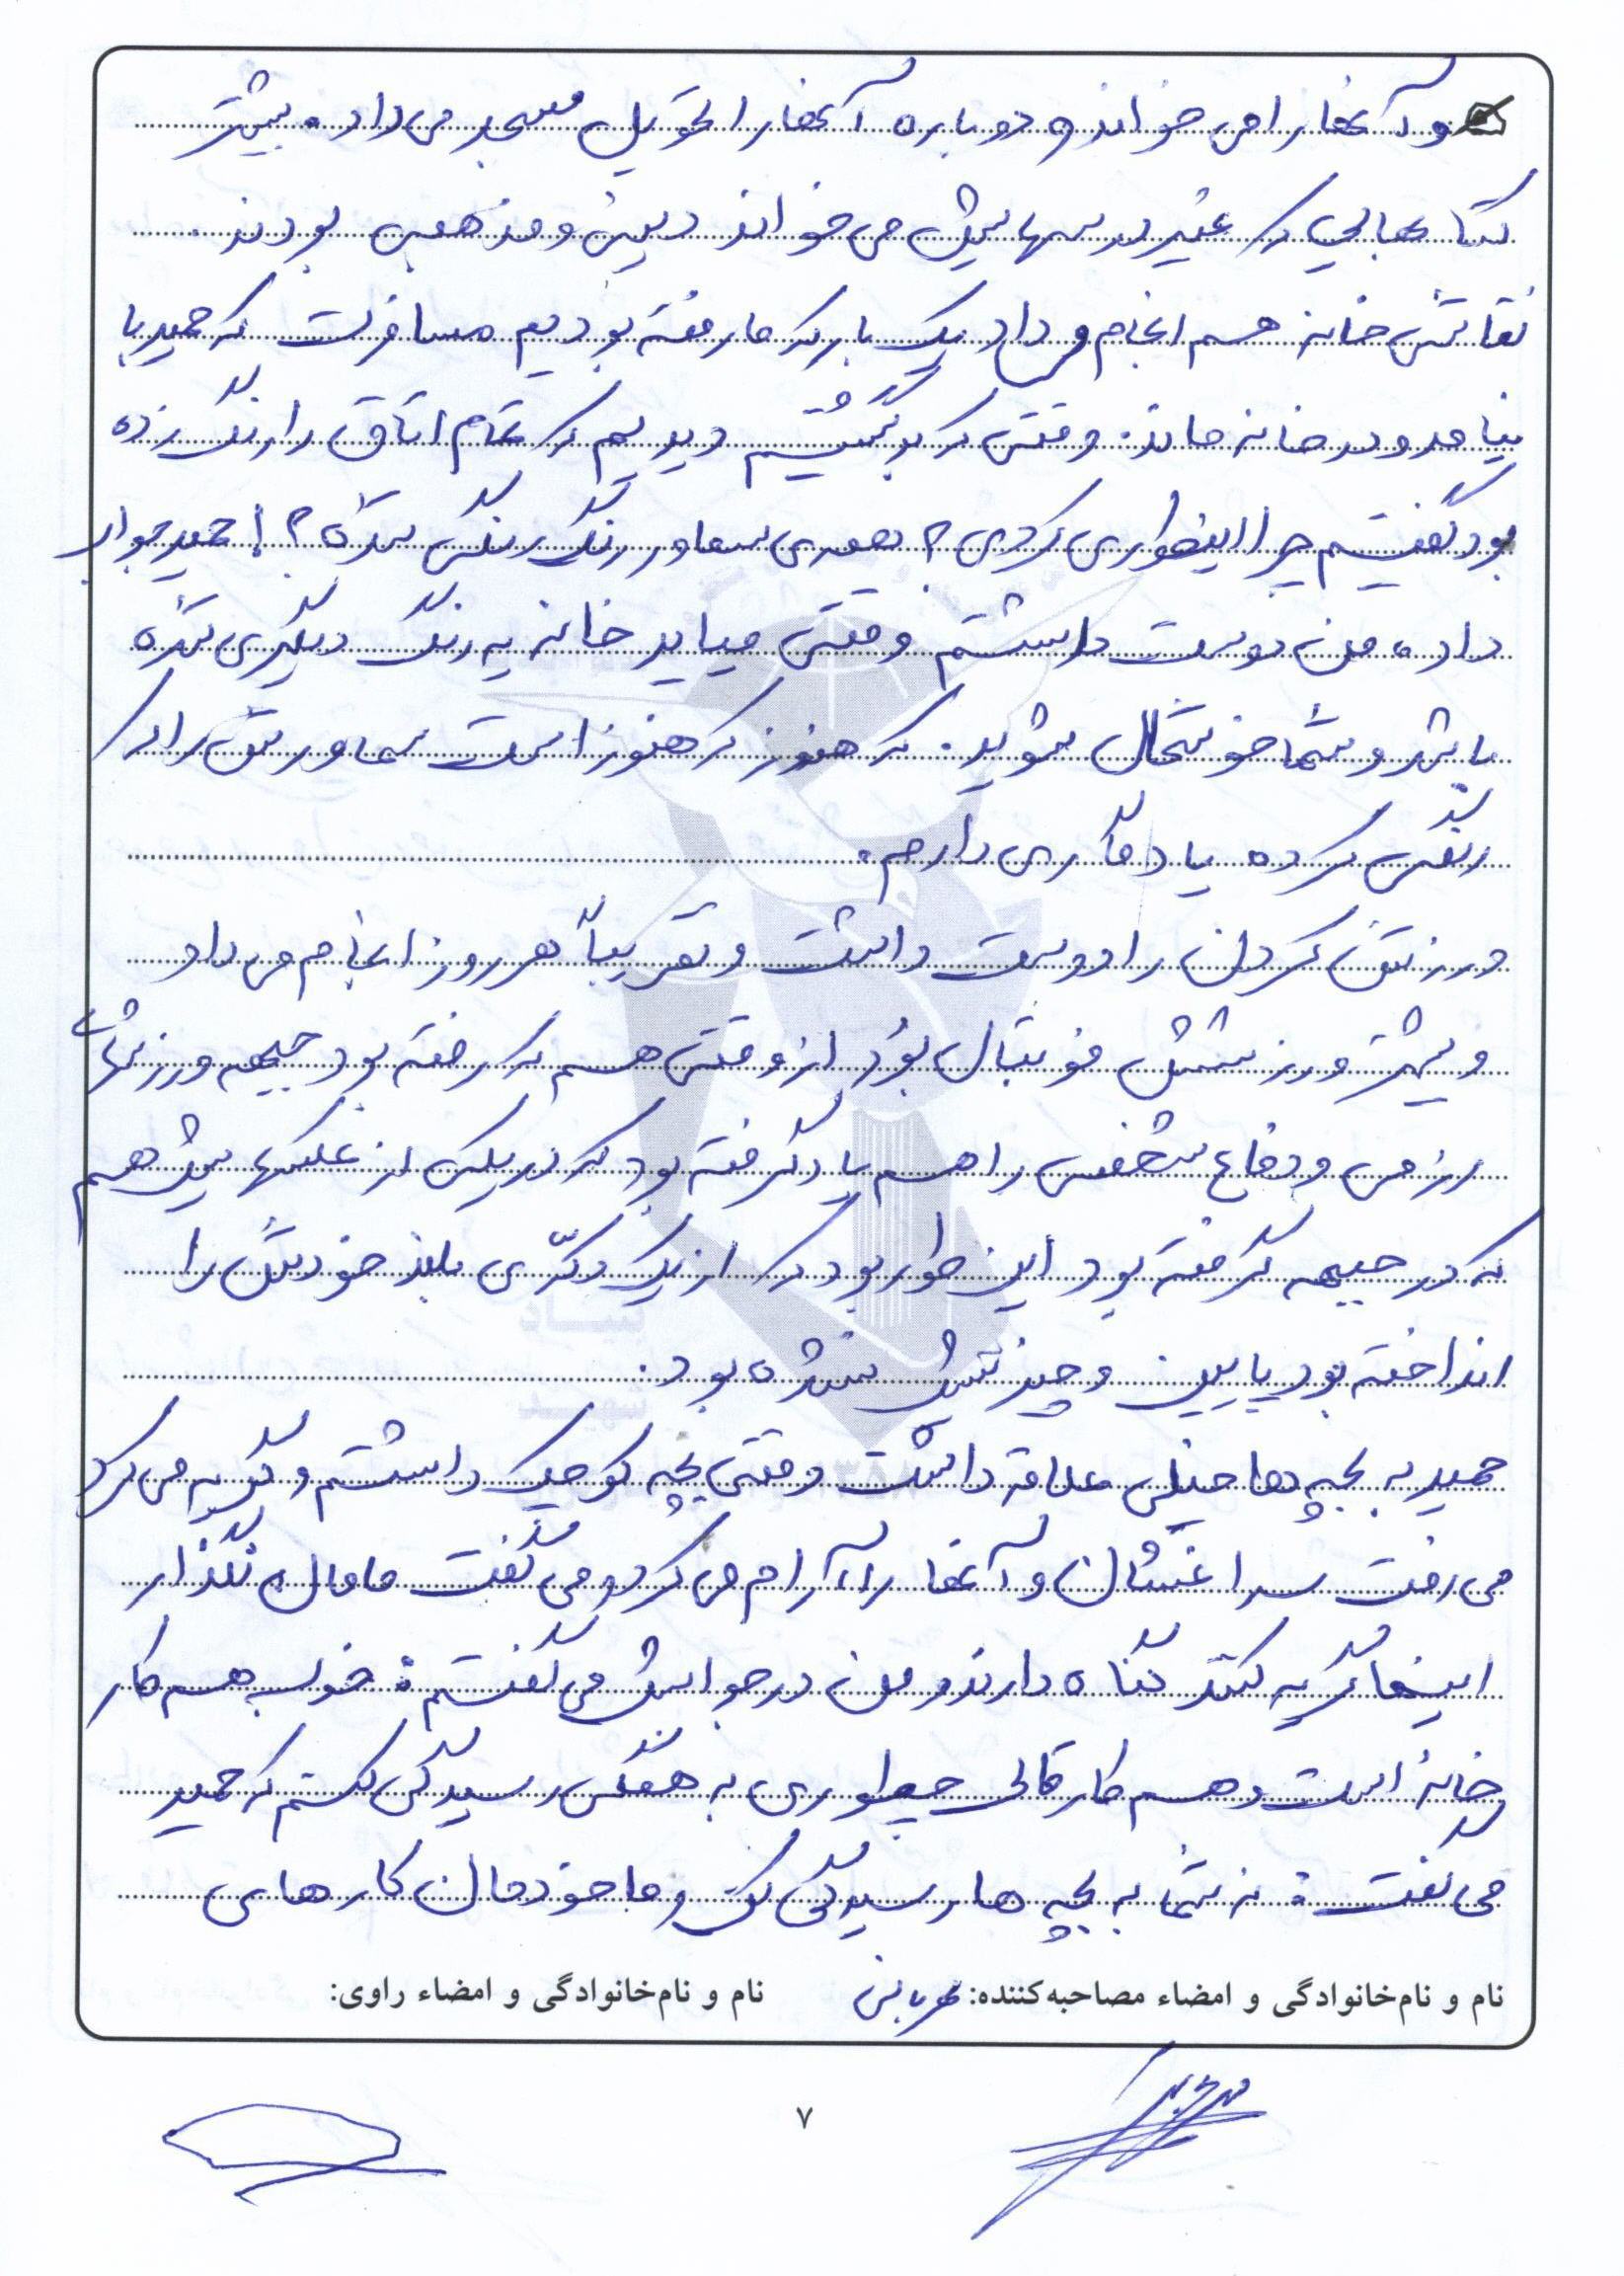 و آنها را می خواند و دوباره آنها را تحویل مسجد می داد. بیشتر
کتابهایی که غیر درسهایش می خواند دینی و مذهبی بودند.
نقاشی خانه هم انجام می داد یک بار که ما رفته بودیم مسافرت که حمید با
نیامد و در خانه ماند. وقتی که برگشتیم دیدیم که تمام اتاق را رنگ زده
بود گفتیم چرا اینطوری کردی؟ همه ی سماور رنگ رنگی شده؟! حمید جواب
داد، من دوست داشتم وقتی میاید خانه یه رنگ دیگری شده
باشد و شما خوشحال بشوید. که هنوز که هنوز است سماورش را که
رنگی کرده یادگاری دارم.
ورزش کردن را دوست داشت و تقریباً هر روز انجام می داد
و بیشتر ورزشش فوتبال بود از وقتی هم که رفته بود جبهه ورزشهای
رزمی و دفاع شخصی را هم یاد گرفته بود که در یکی از عکسهایش هم
که در جبهه گرفته بود این طور بود که از یک دکّری بلند خودش را
انداخته بود پایین و چیزیش نشده بود.
حمید به بچه ها خیلی علاقه داشت وقتی بچه کوچیک داشتم و گریه می کرد
می رفت سراغشان و آنها را آرام می کرد و می گفت مامان نگذار
اینها گریه کنند گناه دارند و من در جوابش می گفتم: خوب هم کار
خانه است و هم کار قالی چطوری به همه اش رسیدگی کنم که حمید
می گفت: نه شما به بچه ها رسیدگی کن و ما خودمان کارهای
نام و نام‌خانوادگی و امضاء مصاحبه‌کننده:
نام و نام‌خانوادگی و امضاء راوی:
۷